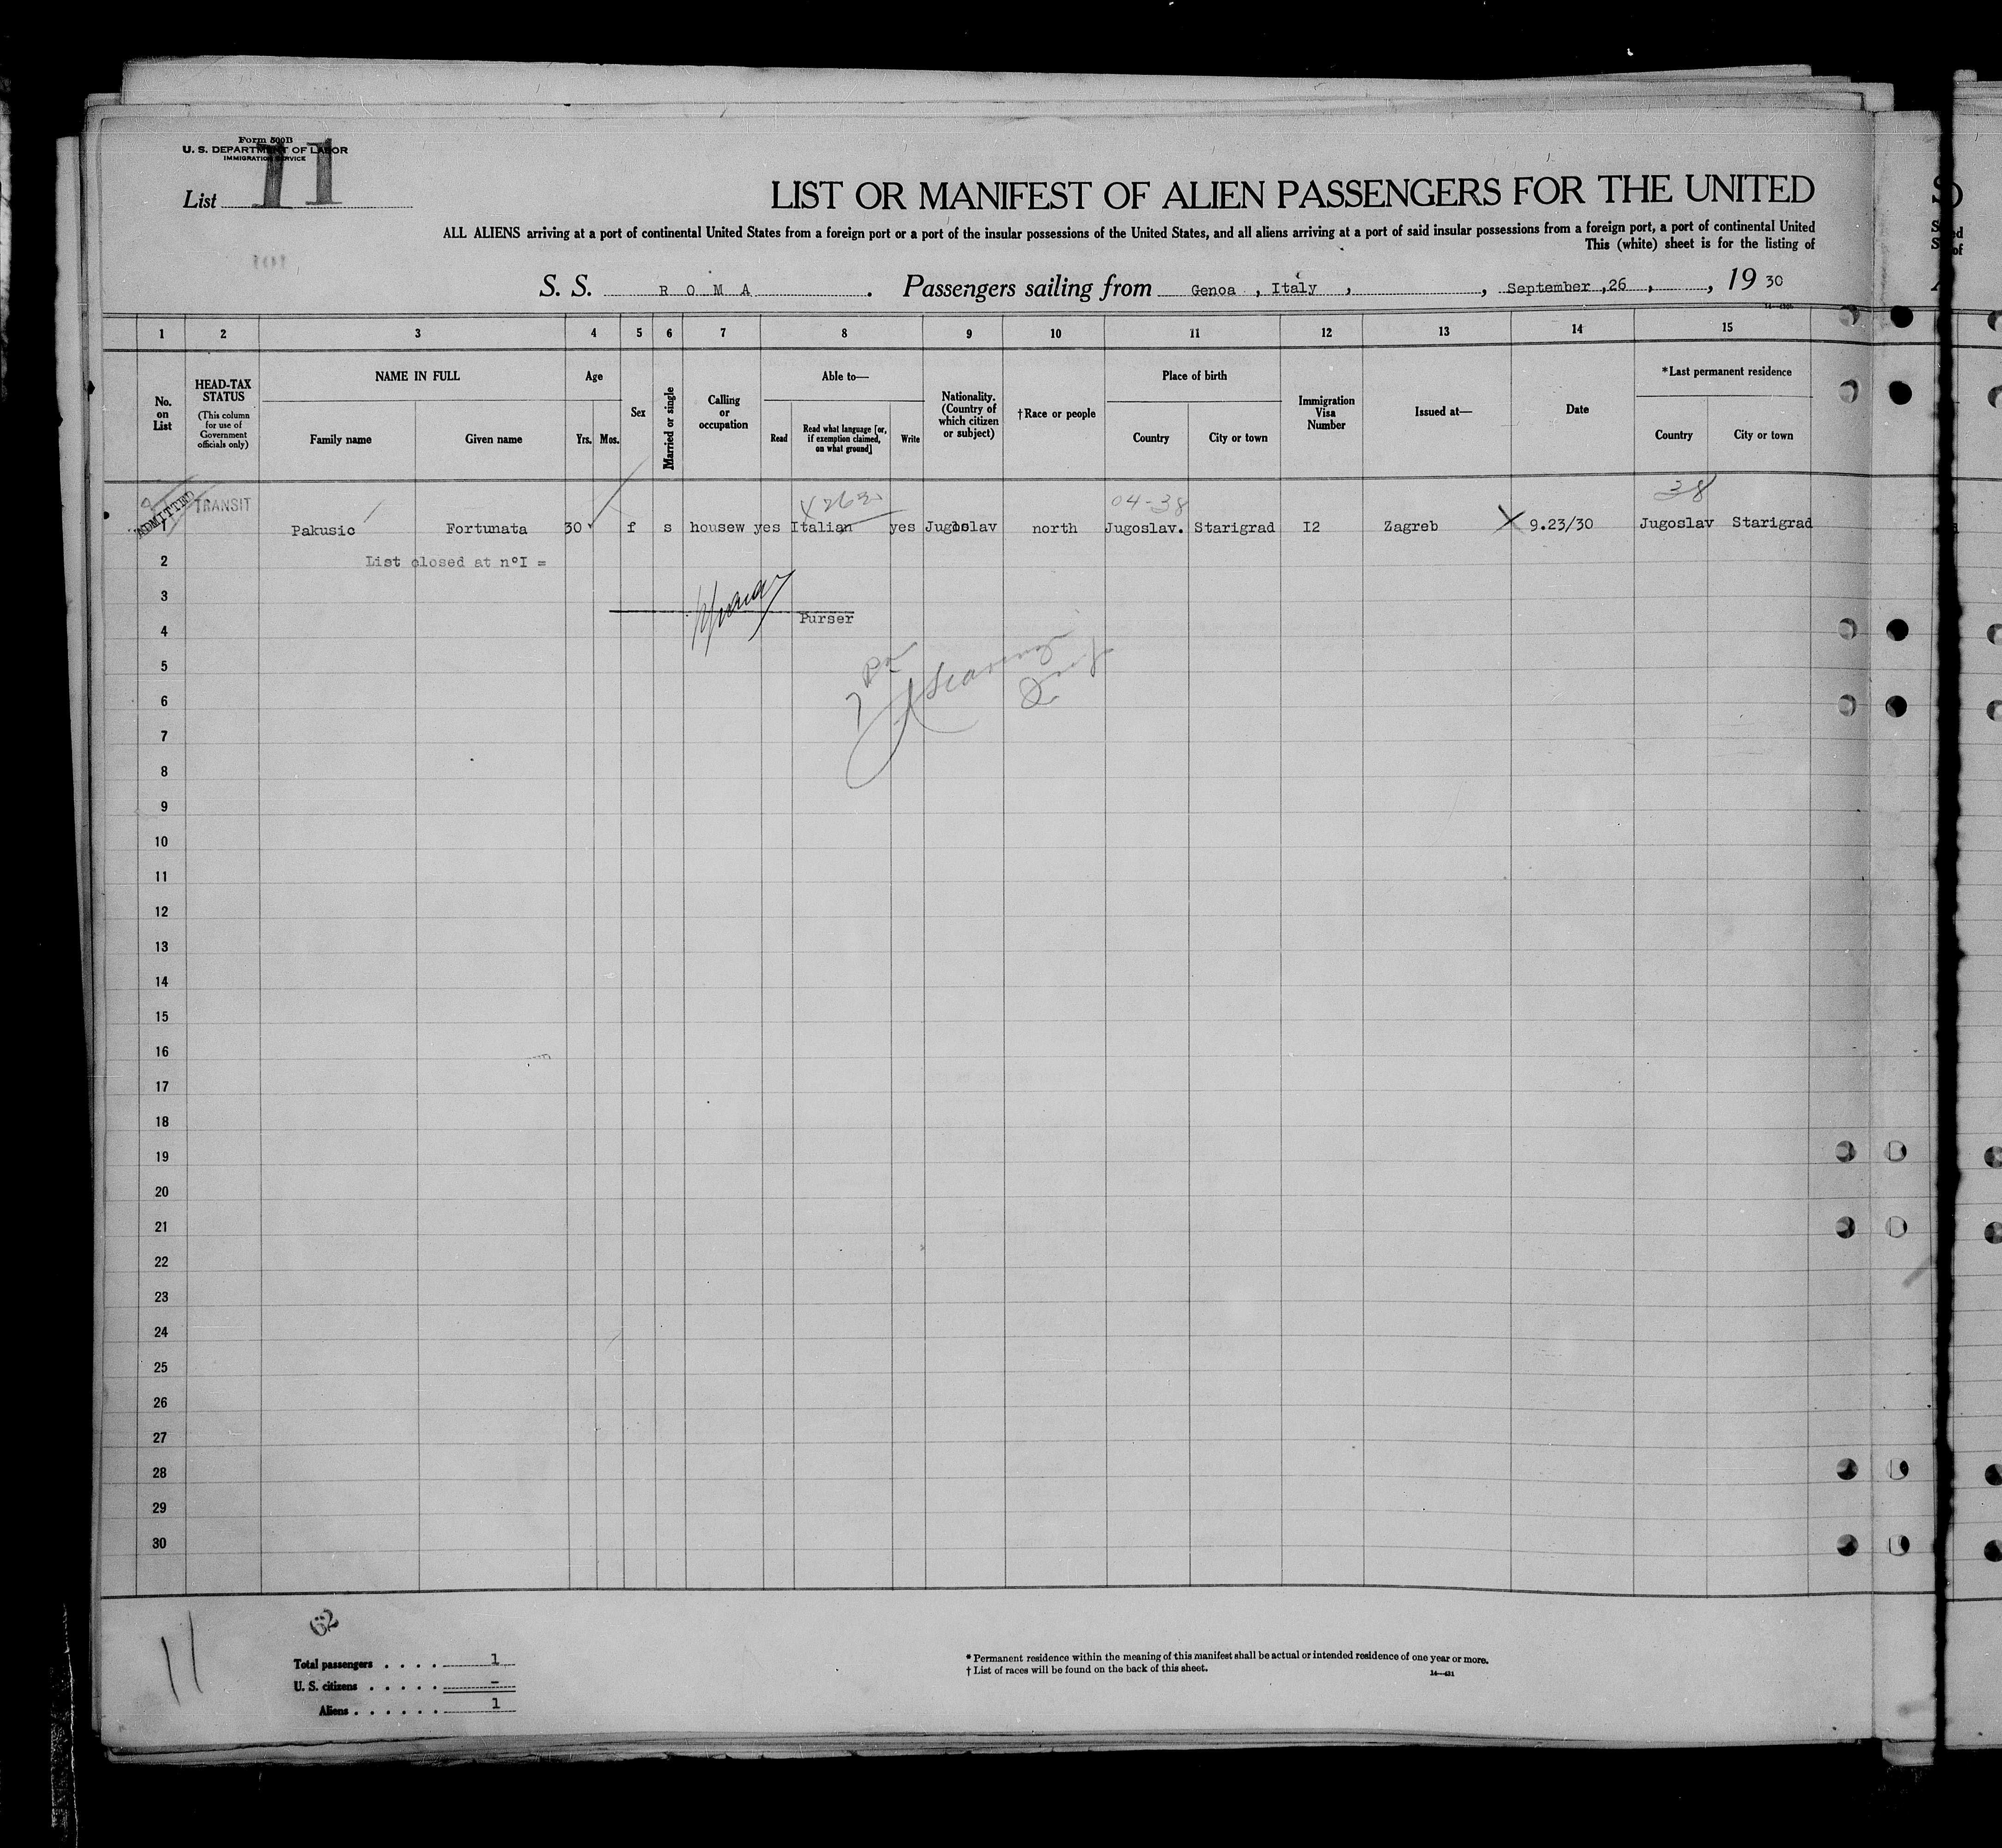 Form 500B
U. S. DEPARTMENT OF LABOR
IMMIGRATION SERVICE
List 11
LIST OR MANIFEST OF ALIEN PASSENGERS FOR THE UNITED
ALL ALIENS arriving at a port of continental United States from a foreign port or a port of the insular possessions of the United States, and all aliens arriving at a port of said insular possessions from a foreign port, a port of continental United
This (white) sheet is for the listing of
S. S. R O M A . Passengers sailing from Genoa , Italy , , September ,26 , , 19 30
1 2 3 4 5 6 7 8 9 10 11 12 13 14 15
No. on List
HEAD-TAX STATUS
(This column for use of Government officials only)
NAME IN FULL
Family name Given name
Age
Yrs. Mos.
Sex
Married or single
Calling or occupation
Able to—
Read
Read what language [or, if exemption claimed, on what ground]
Write
Nationality. (Country of which citizen or subject)
†Race or people
Place of birth
Country City or town
Immigration Visa Number
Issued at—
Date
*Last permanent residence
Country City or town
04-38 38
ADMITTED TRANSIT
1 Pakusic Fortunata 30 f s housew yes Italian yes Jugoslav north Jugoslav. Starigrad I2 Zagreb 9.23/30 Jugoslav Starigrad
2 List closed at n°I =
3
Purser
4
5
6
7
8
9
10
11
12
13
14
15
16
17
18
19
20
21
22
23
24
25
26
27
28
29
30
11
62
Total passengers . . . . 1
U. S. citizens . . . . . –
Aliens . . . . . . 1
* Permanent residence within the meaning of this manifest shall be actual or intended residence of one year or more.
† List of races will be found on the back of this sheet.
14—431